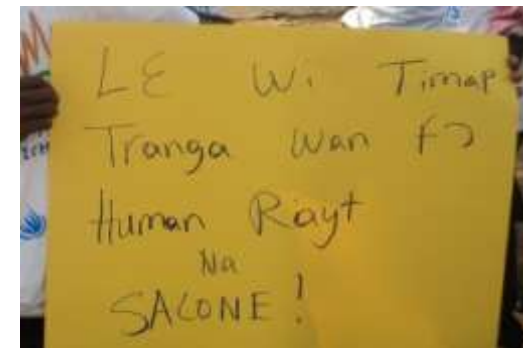 LƐ Wi Timap
Tranga Wan fɔ
Human Rayt
Na
SALONE!